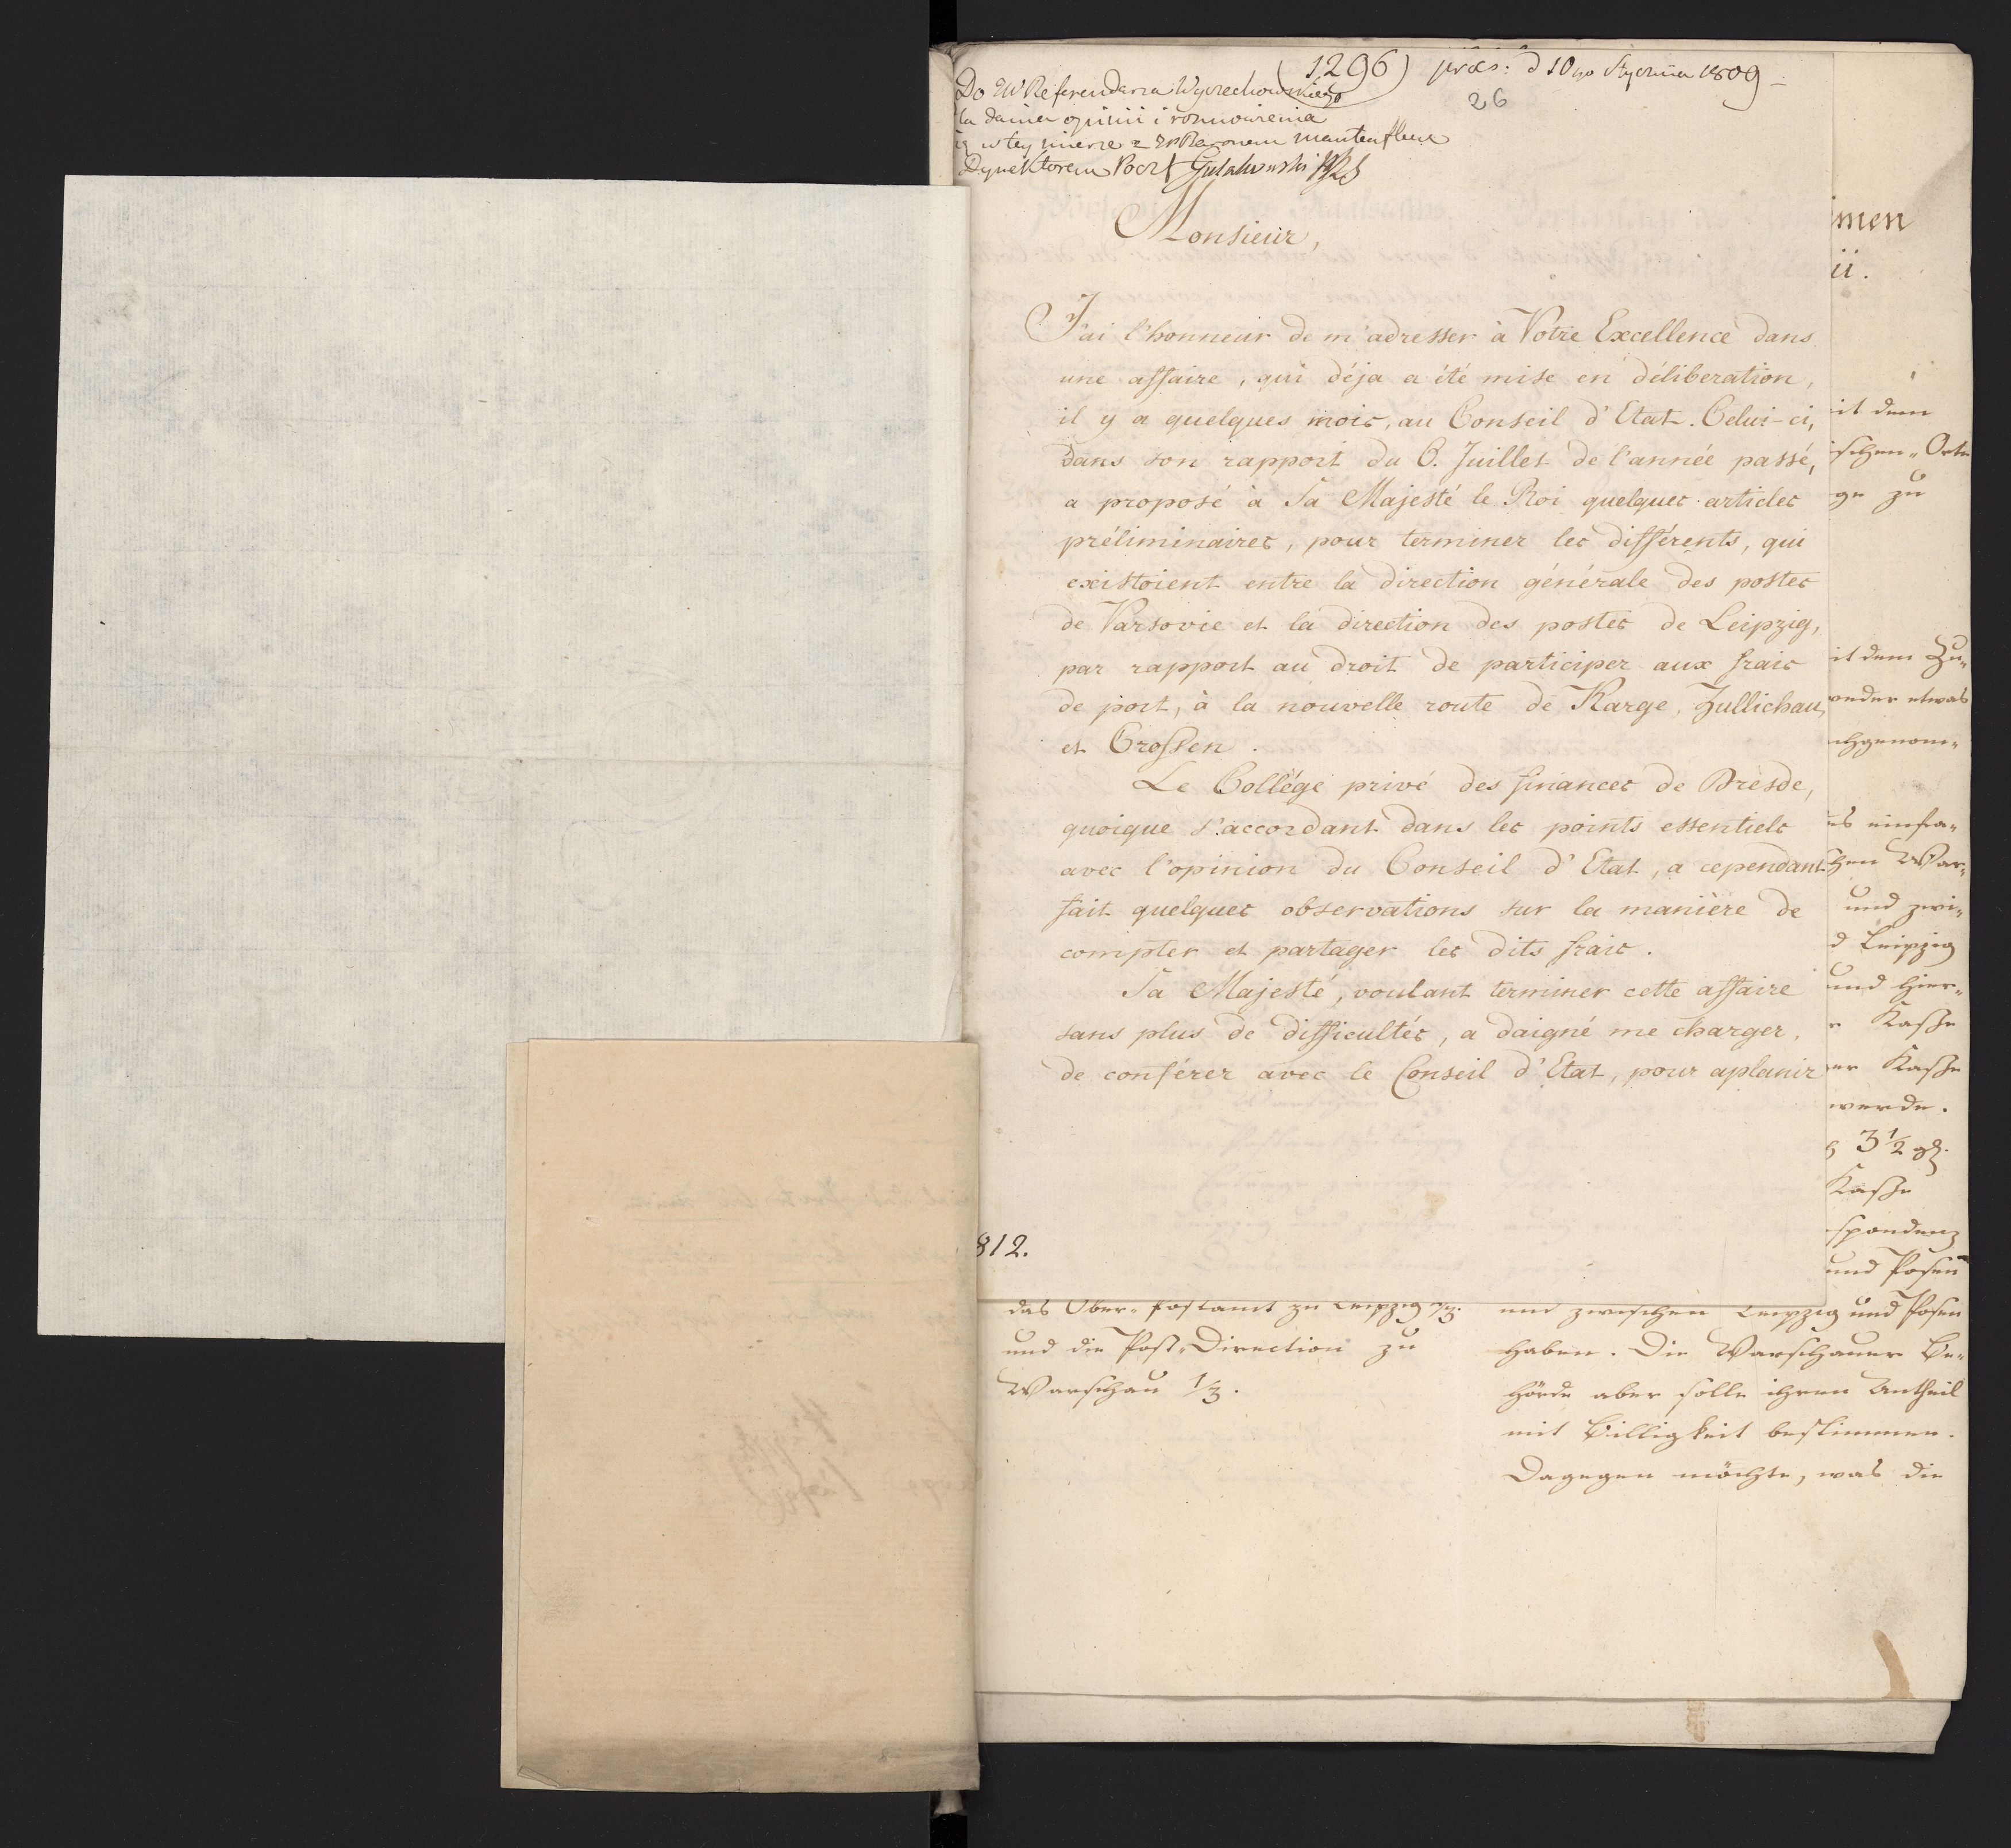 (1296) præs: d 10go Stycznia 1809 –
26
Do JW Referendarza Wyczechowskiego
dania opinii i
w tey mierze z JW Baronem Manteuflem
Dyrektorem Poczt Gutakowski
Monsieur,
J'ai l'honneur de m'adresser à Votre Excellence dans
une affaire, qui déja a été mise en déliberation,
il y a quelques mois, au Conseil d'Etat. Celui-ci,
dans son rapport du 6. Juillet de l'année passé,
a proposé à Sa Majesté le Roi quelques articles
préliminaires, pour terminer les différents, qui
existoient entre la direction générale des postes
de Varsovie et la direction des postes de Leipzig,
par rapport au droit de participer aux frais
de port, à la nouvelle route de Karge, Zullichau,
et Crossen.
Le Collége privé des finances de Dresde,
quoique s'accordant dans les points essentiels
avec l'opinion du Conseil d'Etat, a cependant
fait quelques observations sur la manière de
compter et partager les dits frais.
Sa Majesté, voulant terminer cette affaire
sans plus de difficultés, a daigné me charger,
de conférer avec le Conseil d'Etat, pour aplanir
812.
das Ober-Postamt zu Leipzig 2/3.
und die Post-Direction zu
Warschau 1/3.
men
ii.
it dem
ischen-Orte
ge zu
it dem Zu-
weder etwas
chgenom-
es einfa-
hen War-
und zwi-
d Leipzig
und hier-
r Kasse
er Kasse
werde.
3 1/2 gr.
Kasse
spondenz
und Posen
und zwischen Leipzig und Posen
haben. Die Warschauer Be-
hörde aber solle ihren Antheil
mit Billigkeit bestimmen.
Dagegen möchte, was die